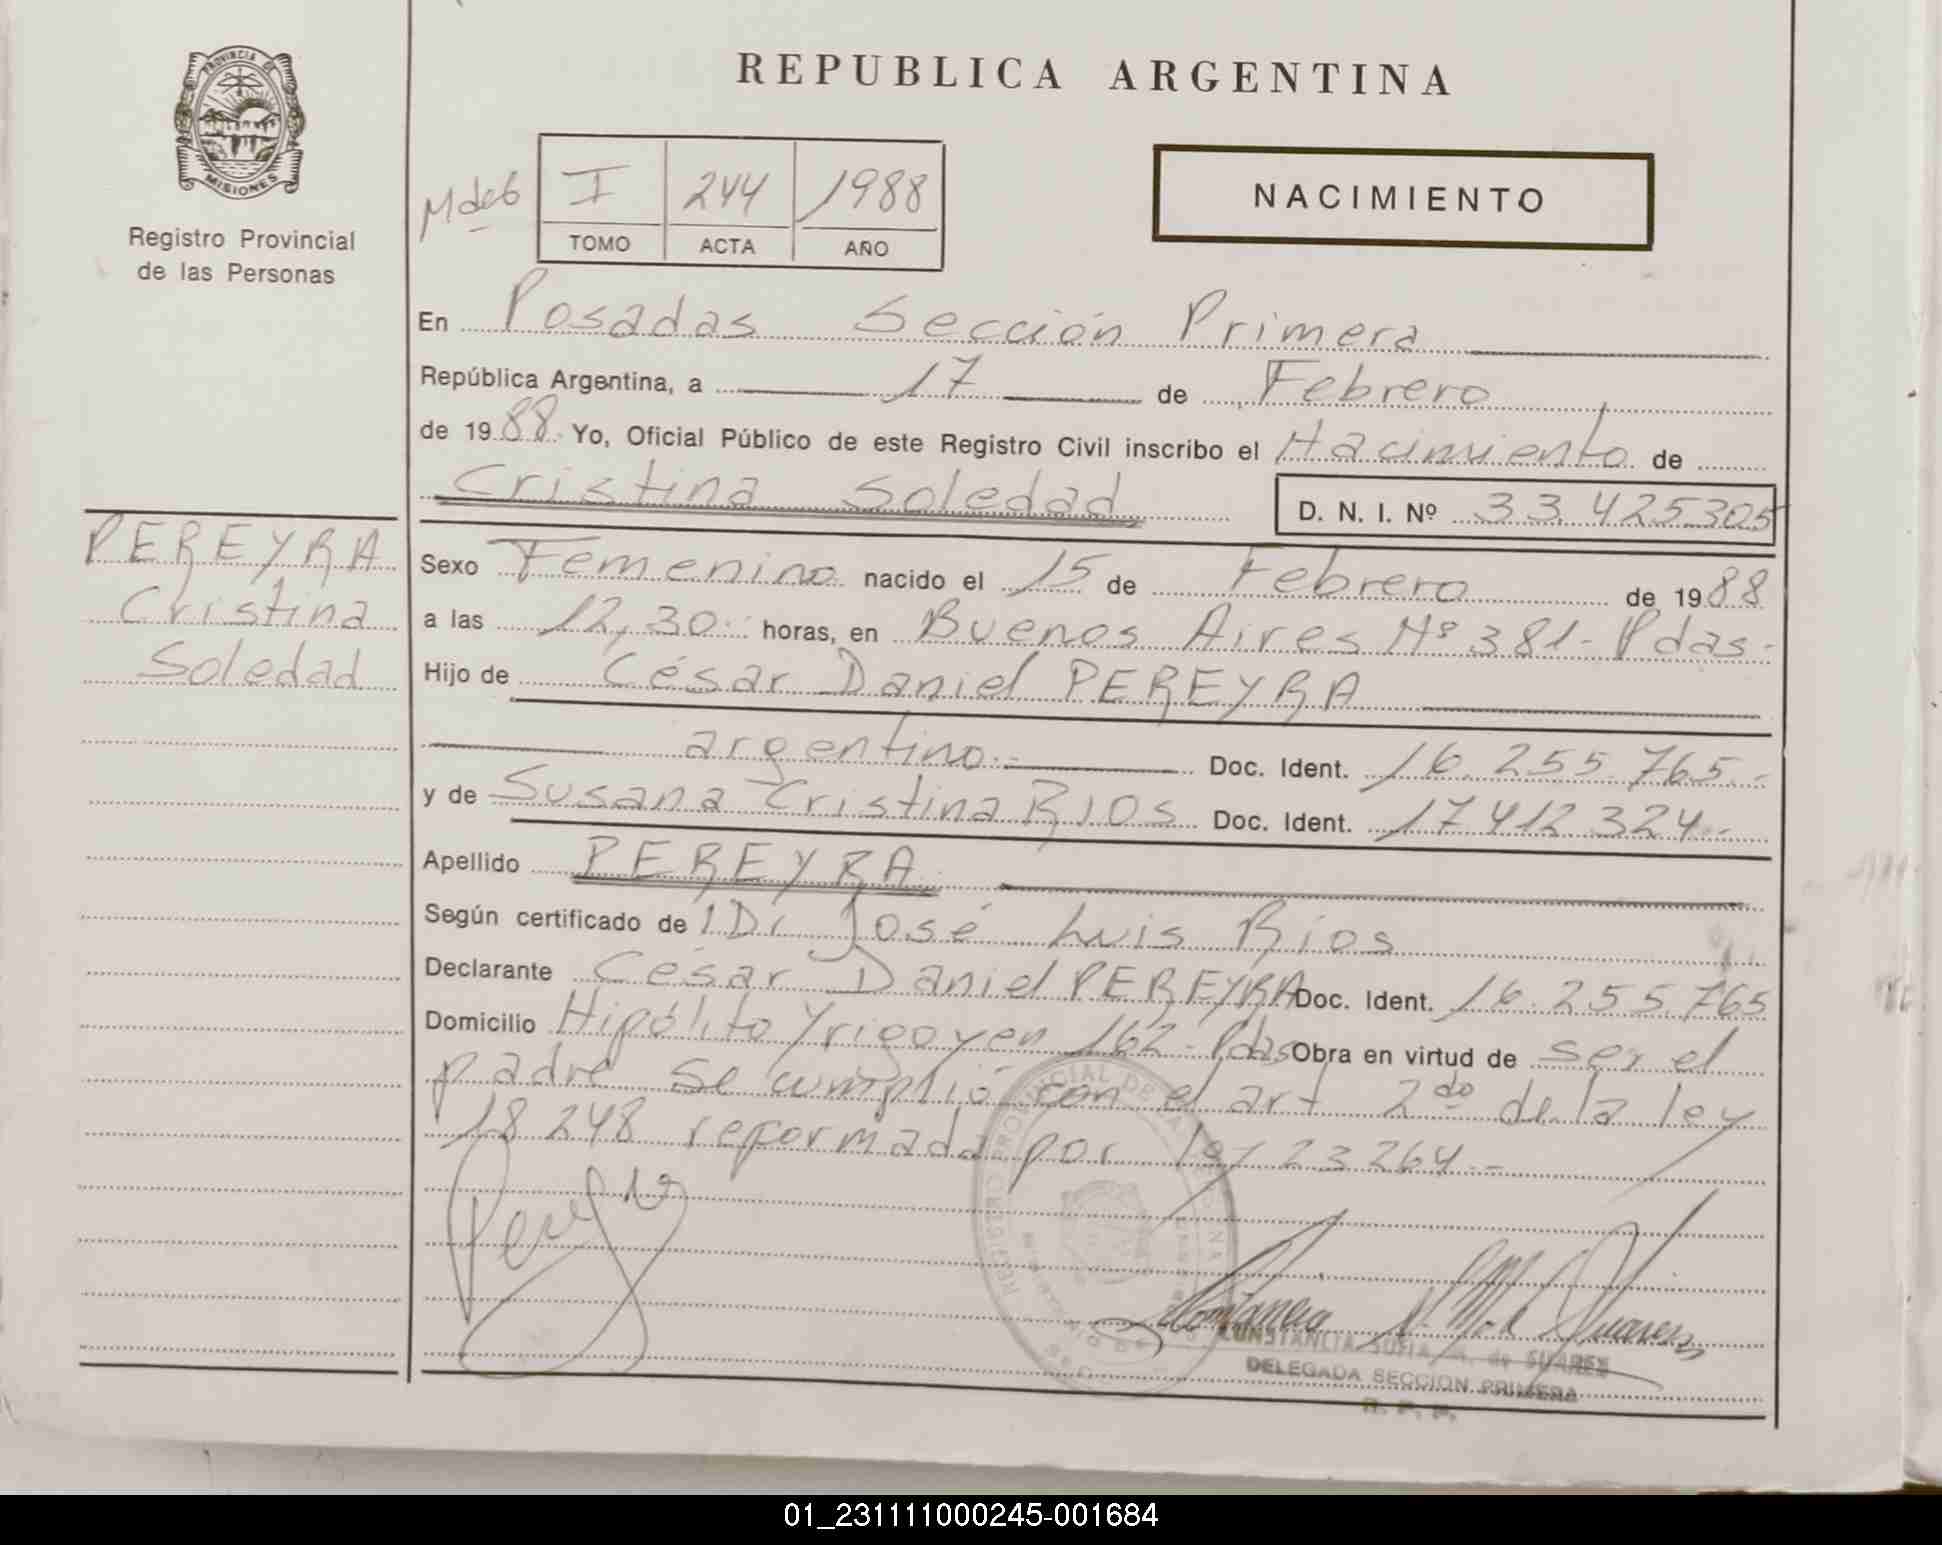 PROVINCIA DE
MISIONES
Registro Provincial
de las Personas
REPUBLICA ARGENTINA
NACIMIENTO
I 244 1988
TOMO ACTA AÑO
En Posadas Sección Primera
República Argentina, a 17 de Febrero
de 1988. Yo, Oficial Público de este Registro Civil inscribo el Nacimiento de
Cristina Soledad D. N. I. Nº 33.425305
PEREYRA
Cristina
Soledad
Sexo Femenino nacido el 15 de Febrero de 1988
a las 12,30 horas, en Buenos Aires Nº 381- Pdas-
Hijo de César Daniel PEREYRA
argentino.- Doc. Ident. 16.255.765.-
y de Susana Cristina RIOS Doc. Ident. 17412324.-
Apellido PEREYRA
Según certificado de l Dr José Luis Ríos
Declarante César Daniel PEREYRA Doc. Ident. 16.255765
Domicilio Hipólito Yrigoyen 162- Pdas Obra en virtud de ser el
padre se cumplió con el art 2do de la ley
18248 reformada por ley 23264.-
CONSTANCIA SOFIA de SUAREZ
DELEGADA SECCION PRIMERA
R. P. P.
01_231111000245-001684